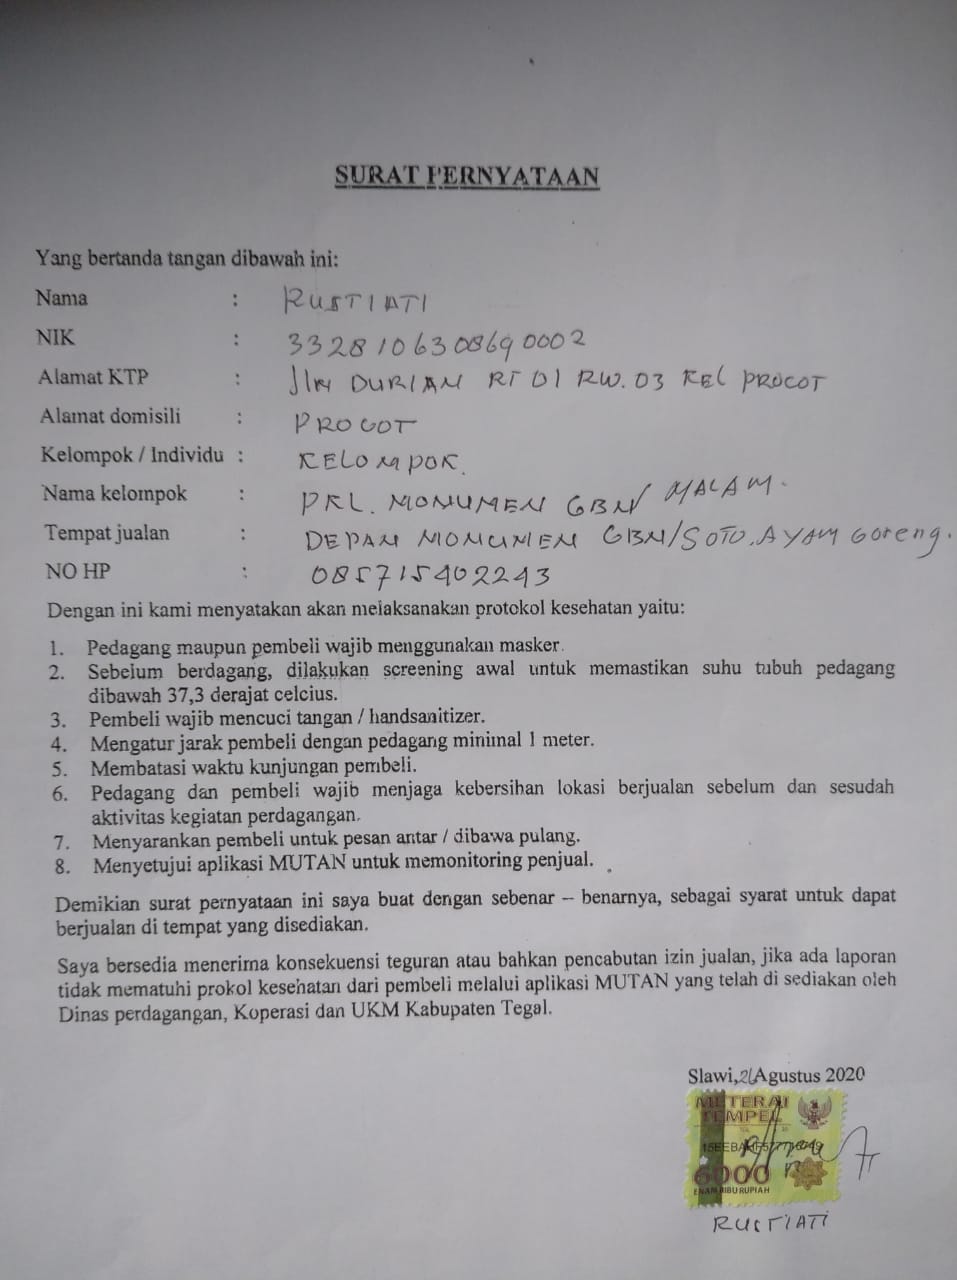 SURAT PERNYATAAN
Yang bertanda tangan dibawah ini:
Nama : RUSTIATI
NIK : 3328106308690002
Alamat KTP : Jln DURIAN RT 01 RW. 03 KEL PROCOT
Alamat domisili : PROCOT
Kelompok / Individu : KELOMPOK.
Nama kelompok : PKL. MONUMEN GBN/ MALAM.
Tempat jualan : DEPAN MONUMEN GBN/SOTO. AYAM Goreng.
NO HP : 085715402243
Dengan ini kami menyatakan akan melaksanakan protokol kesehatan yaitu:
1. Pedagang maupun pembeli wajib menggunakan masker.
2. Sebelum berdagang, dilakukan screening awal untuk memastikan suhu tubuh pedagang
dibawah 37,3 derajat celcius.
3. Pembeli wajib mencuci tangan / handsanitizer.
4. Mengatur jarak pembeli dengan pedagang minimal 1 meter.
5. Membatasi waktu kunjungan pembeli.
6. Pedagang dan pembeli wajib menjaga kebersihan lokasi berjualan sebelum dan sesudah
aktivitas kegiatan perdagangan.
7. Menyarankan pembeli untuk pesan antar / dibawa pulang.
8. Menyetujui aplikasi MUTAN untuk memonitoring penjual.
Demikian surat pernyataan ini saya buat dengan sebenar – benarnya, sebagai syarat untuk dapat
berjualan di tempat yang disediakan.
Saya bersedia menerima konsekuensi teguran atau bahkan pencabutan izin jualan, jika ada laporan
tidak mematuhi prokol kesehatan dari pembeli melalui aplikasi MUTAN yang telah di sediakan oleh
Dinas perdagangan, Koperasi dan UKM Kabupaten Tegal.
Slawi, Agustus 2020
METERAI
TEMPEL
6000
ENAM RIBU RUPIAH
RUSTIATI